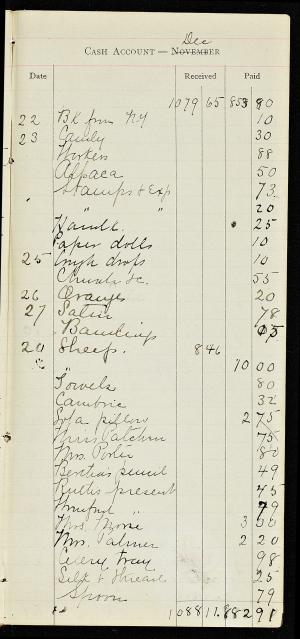 Dec
CASH ACCOUNT — NOVEMBER
Date Received Paid
1079 65 858 80
22 Bk from NY 10
23 Candy 30
Workers 88
Alpaca 50
Stamps & Exp 73
" " " 20
Handk. 25
Paper dolls 10
25 Cough drops 10
Church &c. 55
26 Oranges 20
27 Satin 78
05
20 Sheep. 8 46
10 00
Towels 80
Cambric 32
Sofa pillow 2 75
Miss Patchin 75
Mrs. Porter 80
Bertha's pencil 49
Ruth's present 45
" 79
Mrs. Morse 3 00
Mrs. Palmer 2 20
Celery tray 98
Silk & thread 25
Spoon 79
1088 11 882 91